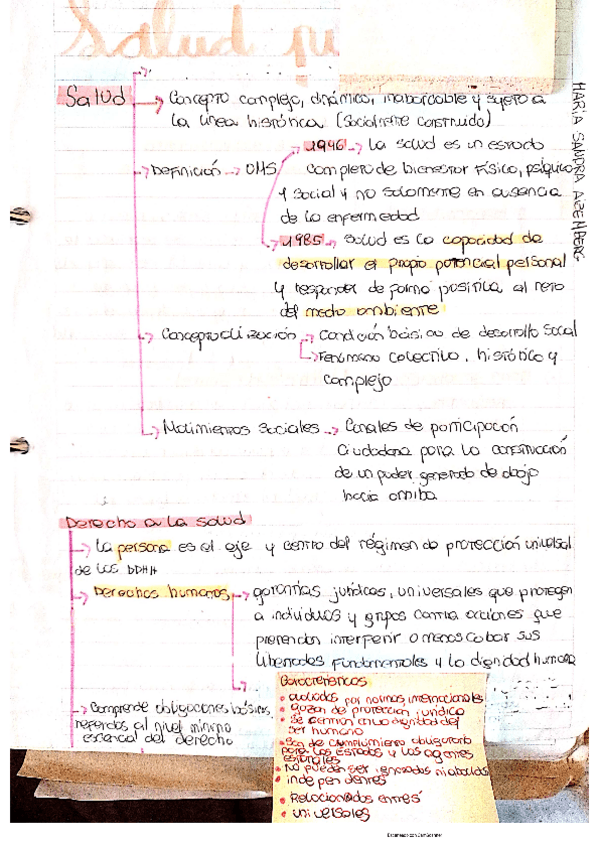 Salud pu
Salud
→ Concepto complejo, dinámico, inabarcable y sujeto a
la línea histórica (socialmente construido)
→ Definición → OMS
1946 → la salud es un estado
completo de bienestar físico, psíquico
y social y no solamente en ausencia
de la enfermedad
1985 → Salud es la capacidad de
desarrollar el propio potencial personal
y responder de forma positiva al reto
del medio ambiente
→ Conceptualización → Condición básica de desarrollo social
→ Fenómeno colectivo, histórico y
complejo
→ Movimientos sociales → Canales de participación
ciudadana para la construcción
de un poder generado de abajo
hacia arriba
MARIA SANDRA AIZENBERG
Derecho a la salud
→ la persona es el eje y centro del régimen de protección universal
de los DDHH
→ Derechos humanos → garantías jurídicas, universales que protegen
a individuos y grupos contra acciones que
pretendan interferir o menoscabar sus
libertades fundamentales y la dignidad humana
→ Comprende obligaciones básicas
referidas al nivel mínimo
esencial del derecho
Características
• avalados por normas internacionales
• gozan de protección jurídica
• se centran en la dignidad del
ser humano
• son de cumplimiento obligatorio
para los estados y los agentes
estatales
• No pueden ser negados ni abolidos
• independientes
• Relacionados entre sí
• universales
Escaneado con CamScanner